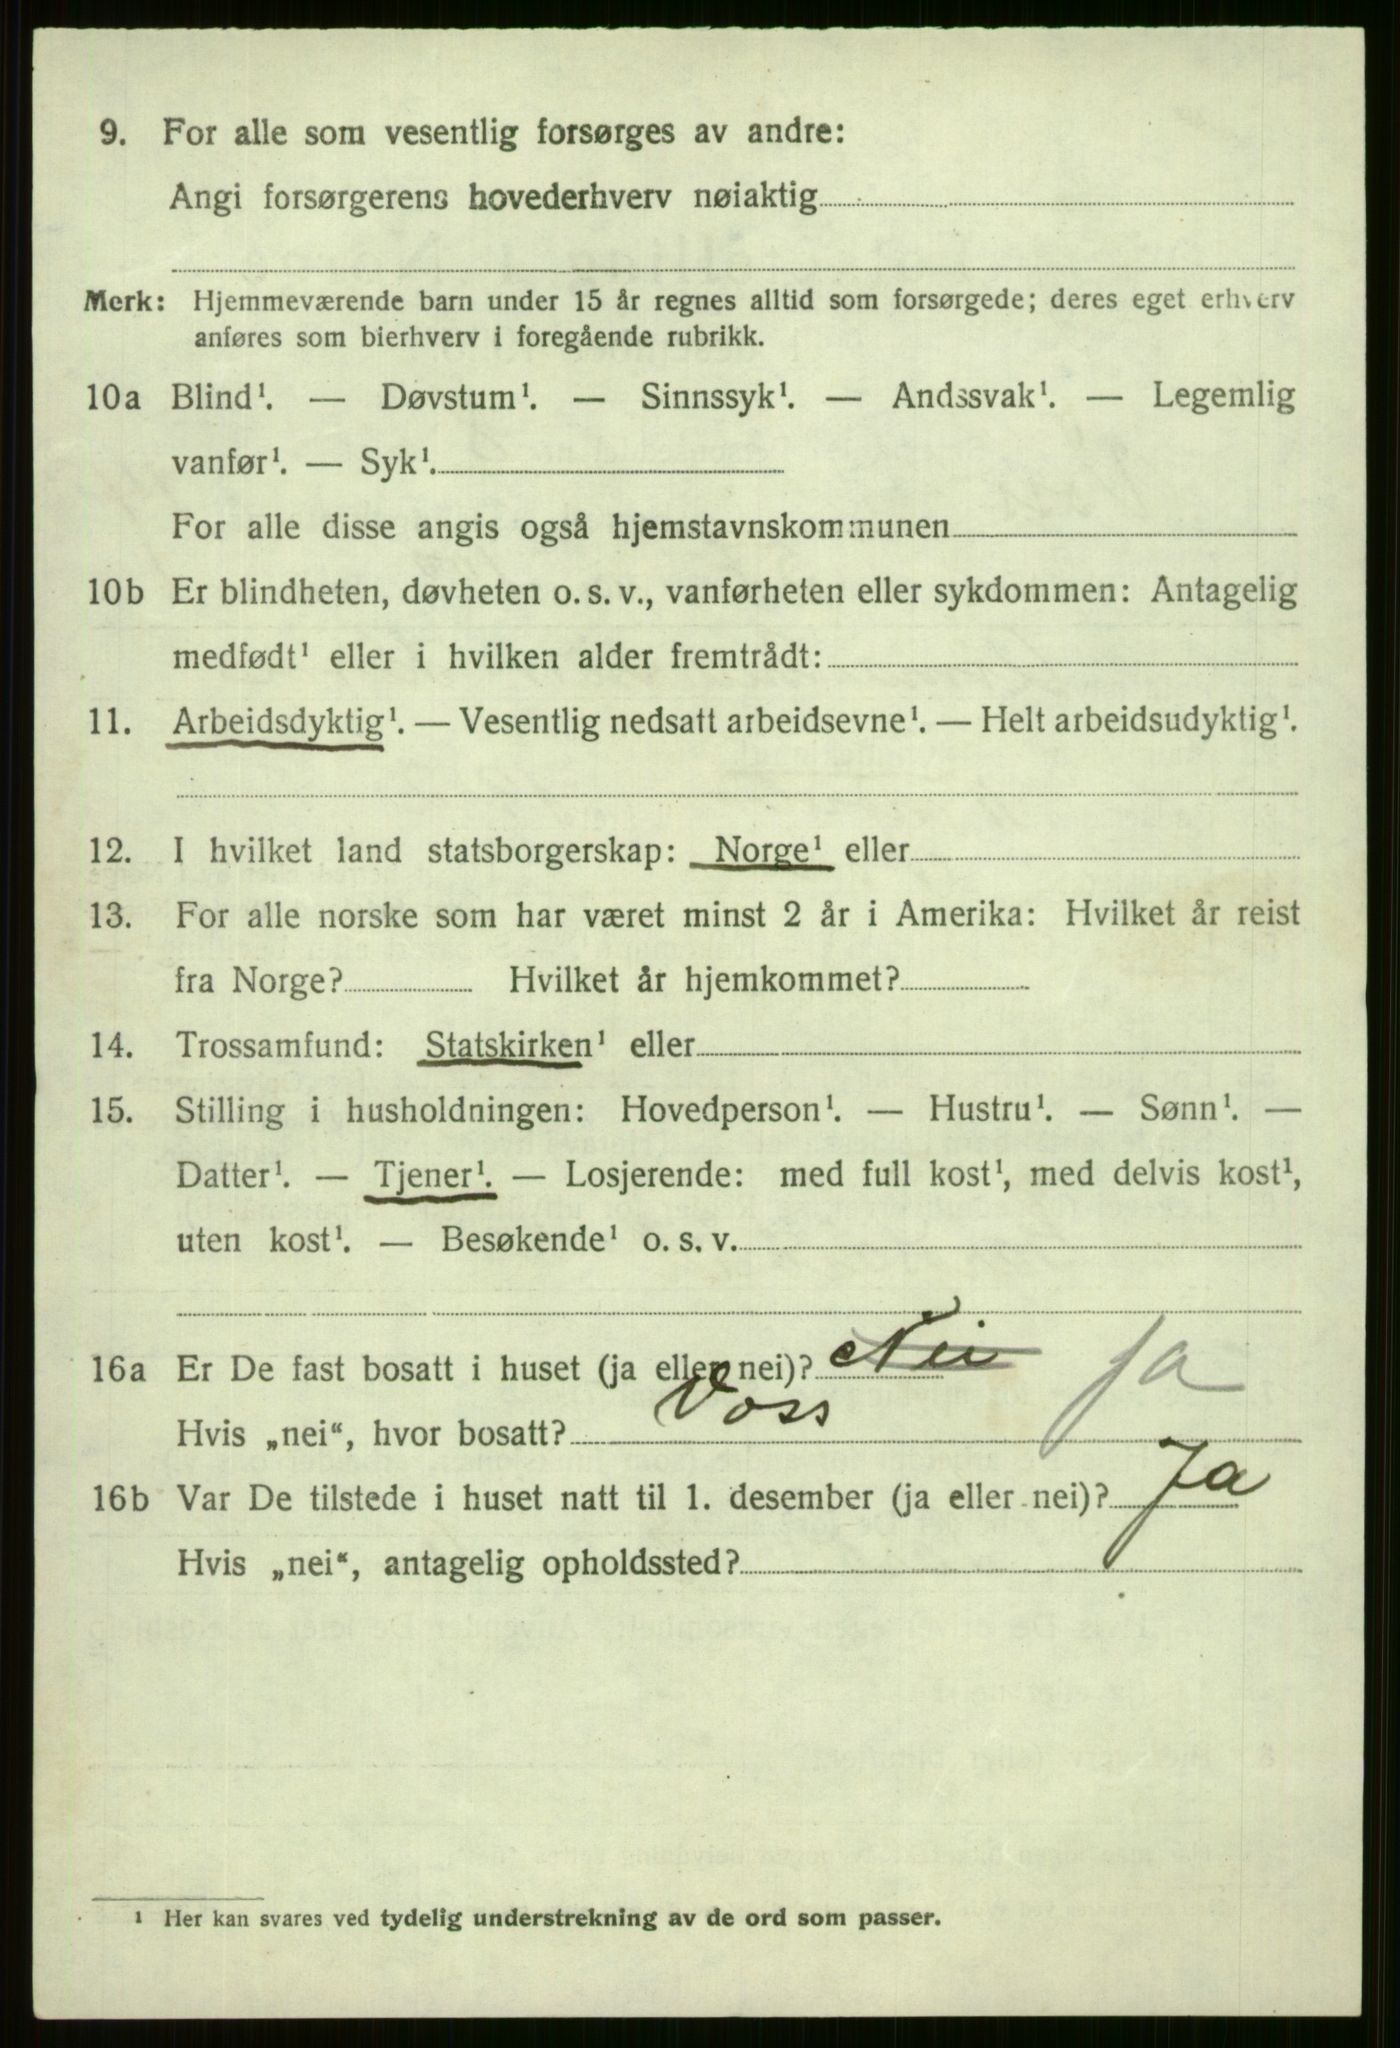 9. For alle som vesentlig forsørges av andre:
Angi forsørgerens hovederhverv nøiaktig
Merk: Hjemmeværende barn under 15 år regnes alltid som forsørgede; deres eget erhverv
anføres som bierhverv i foregående rubrikk.
10a Blind¹. — Døvstum¹. — Sinnssyk¹. — Andssvak¹. — Legemlig
vanfør¹. — Syk¹.
For alle disse angis også hjemstavnskommunen
10b Er blindheten, døvheten o. s. v., vanførheten eller sykdommen: Antagelig
medfødt¹ eller i hvilken alder fremtrådt:
11. Arbeidsdyktig¹. — Vesentlig nedsatt arbeidsevne¹. — Helt arbeidsudyktig¹.
12. I hvilket land statsborgerskap: Norge¹ eller
13. For alle norske som har været minst 2 år i Amerika: Hvilket år reist
fra Norge? Hvilket år hjemkommet?
14. Trossamfund: Statskirken¹ eller
15. Stilling i husholdningen: Hovedperson¹. — Hustru¹. — Sønn¹. —
Datter¹. — Tjener¹. — Losjerende: med full kost¹, med delvis kost¹,
uten kost¹. — Besøkende¹ o. s. v.
16a Er De fast bosatt i huset (ja eller nei)? Nei Ja
Hvis „nei“, hvor bosatt? Voss
16b Var De tilstede i huset natt til 1. desember (ja eller nei)? Ja
Hvis „nei“, antagelig opholdssted?
¹ Her kan svares ved tydelig understrekning av de ord som passer.